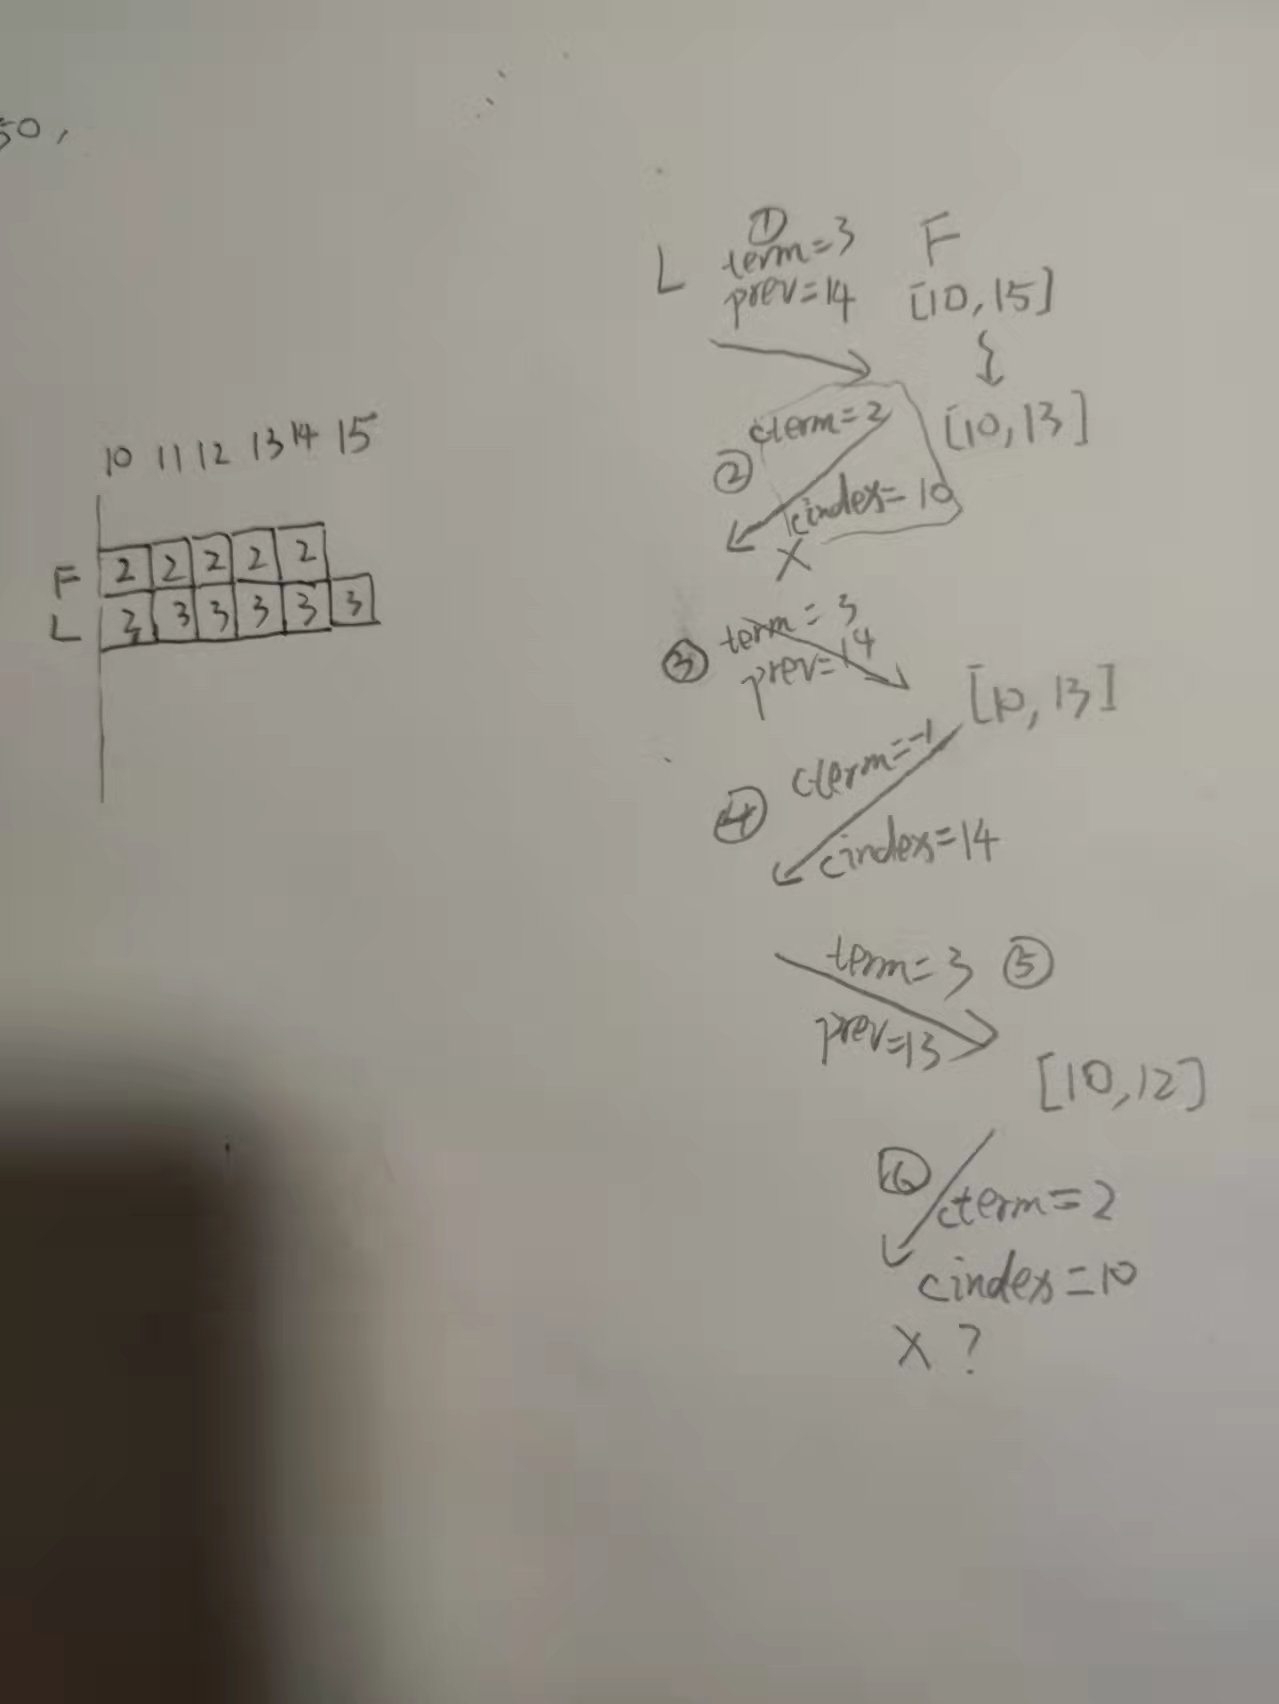 50,
10 11 12 13 14 15
F 2 2 2 2 2
L 3 3 3 3 3 3
①
L term=3 F
prev=14 [10,15]
cterm=2 [10,13]
②
cindex=10
X
③ term=3
prev=14 [10,13]
cterm=-1
④
cindex=14
term=3 ⑤
prev=13
[10,12]
⑥
cterm=2
cindex=10
X ?